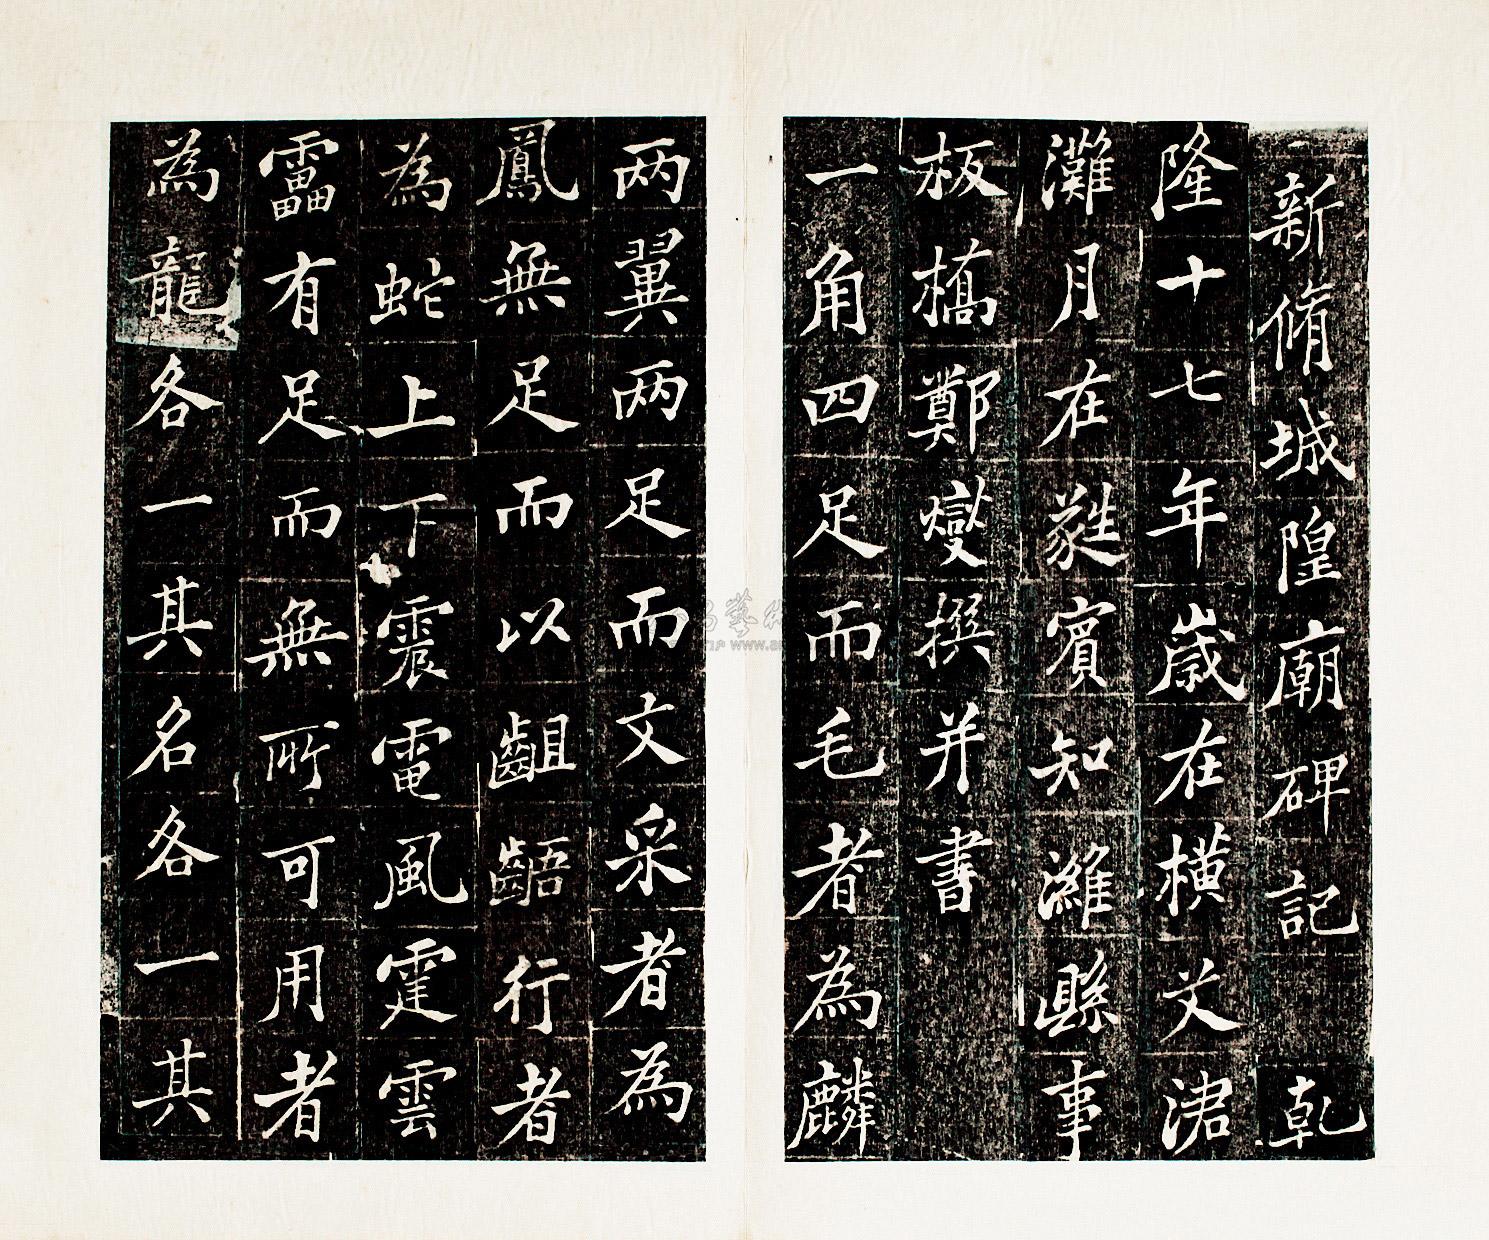 新脩城隍廟碑記 乾
隆十七年歲在橫艾涒
灘月在蕤賓知濰縣事
板橋鄭燮撰并書
一角四足而毛者為麟
两翼两足而文采者為
鳳無足而以齟齬行者
為蛇上下震電風霆雲
靁有足而無所可用者
為龍各一其名各一其